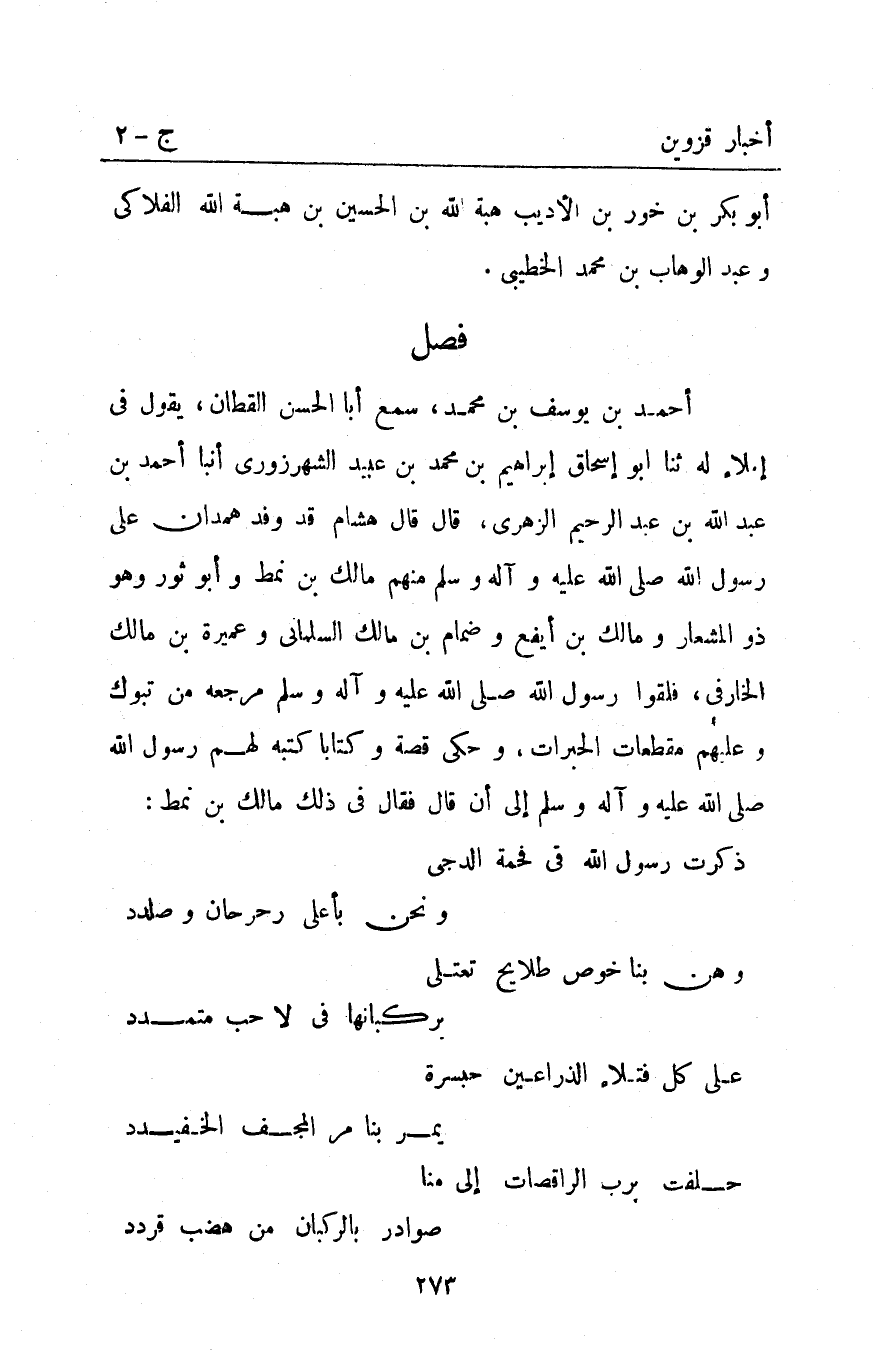 أخبار قزوين ج - ٢
أبو بكر بن خور بن الأديب هبة الله بن الحسين بن هبة الله الفلاكى
و عبد الوهاب بن محمد الخطيبى .
فصل
أحمد بن يوسف بن محمد، سمع أبا الحسن القطان، يقول فى
إملاء له ثنا ابو إسحاق إبراهيم بن محمد بن عبيد الشهرزورى أنبا أحمد بن
عبد الله بن عبد الرحيم الزهرى، قال قال هشام قد وفد همدان على
رسول الله صلى الله عليه و آله و سلم منهم مالك بن نمط و أبو ثور وهو
ذو المشعار و مالك بن أيفع و ضمام بن مالك السلمانى و عميرة بن مالك
الخارفى، فلقوا رسول الله صلى الله عليه و آله و سلم مرجعه من تبوك
و عليهم مقطعات الحبرات، و حكى قصة و كتابا كتبه لهم رسول الله
صلى الله عليه و آله و سلم إلى أن قال فقال فى ذلك مالك بن نمط :
ذكرت رسول الله فى فحمة الدجى
و نحن بأعلى رحرحان و صلدد
و هن بنا خوص طلايح تعتلى
بركبانها فى لا حب متمدد
على كل فتلاء الذراعين حبسرة
يمر بنا مر المجف الخفيدد
حلفت برب الراقصات إلى منا
صوادر بالركبان من هضب قردد
٢٧٣